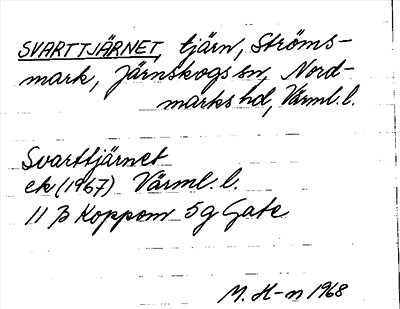 SVARTTJÄRNET, tjärn, Ströms-
mark, Järnskogs sn, Nord-
marks hd, Värml. l.
Svarttjärnet
ek (1967) Värml. l.
11 B Koppom 5g Gate
M. H-n 1968